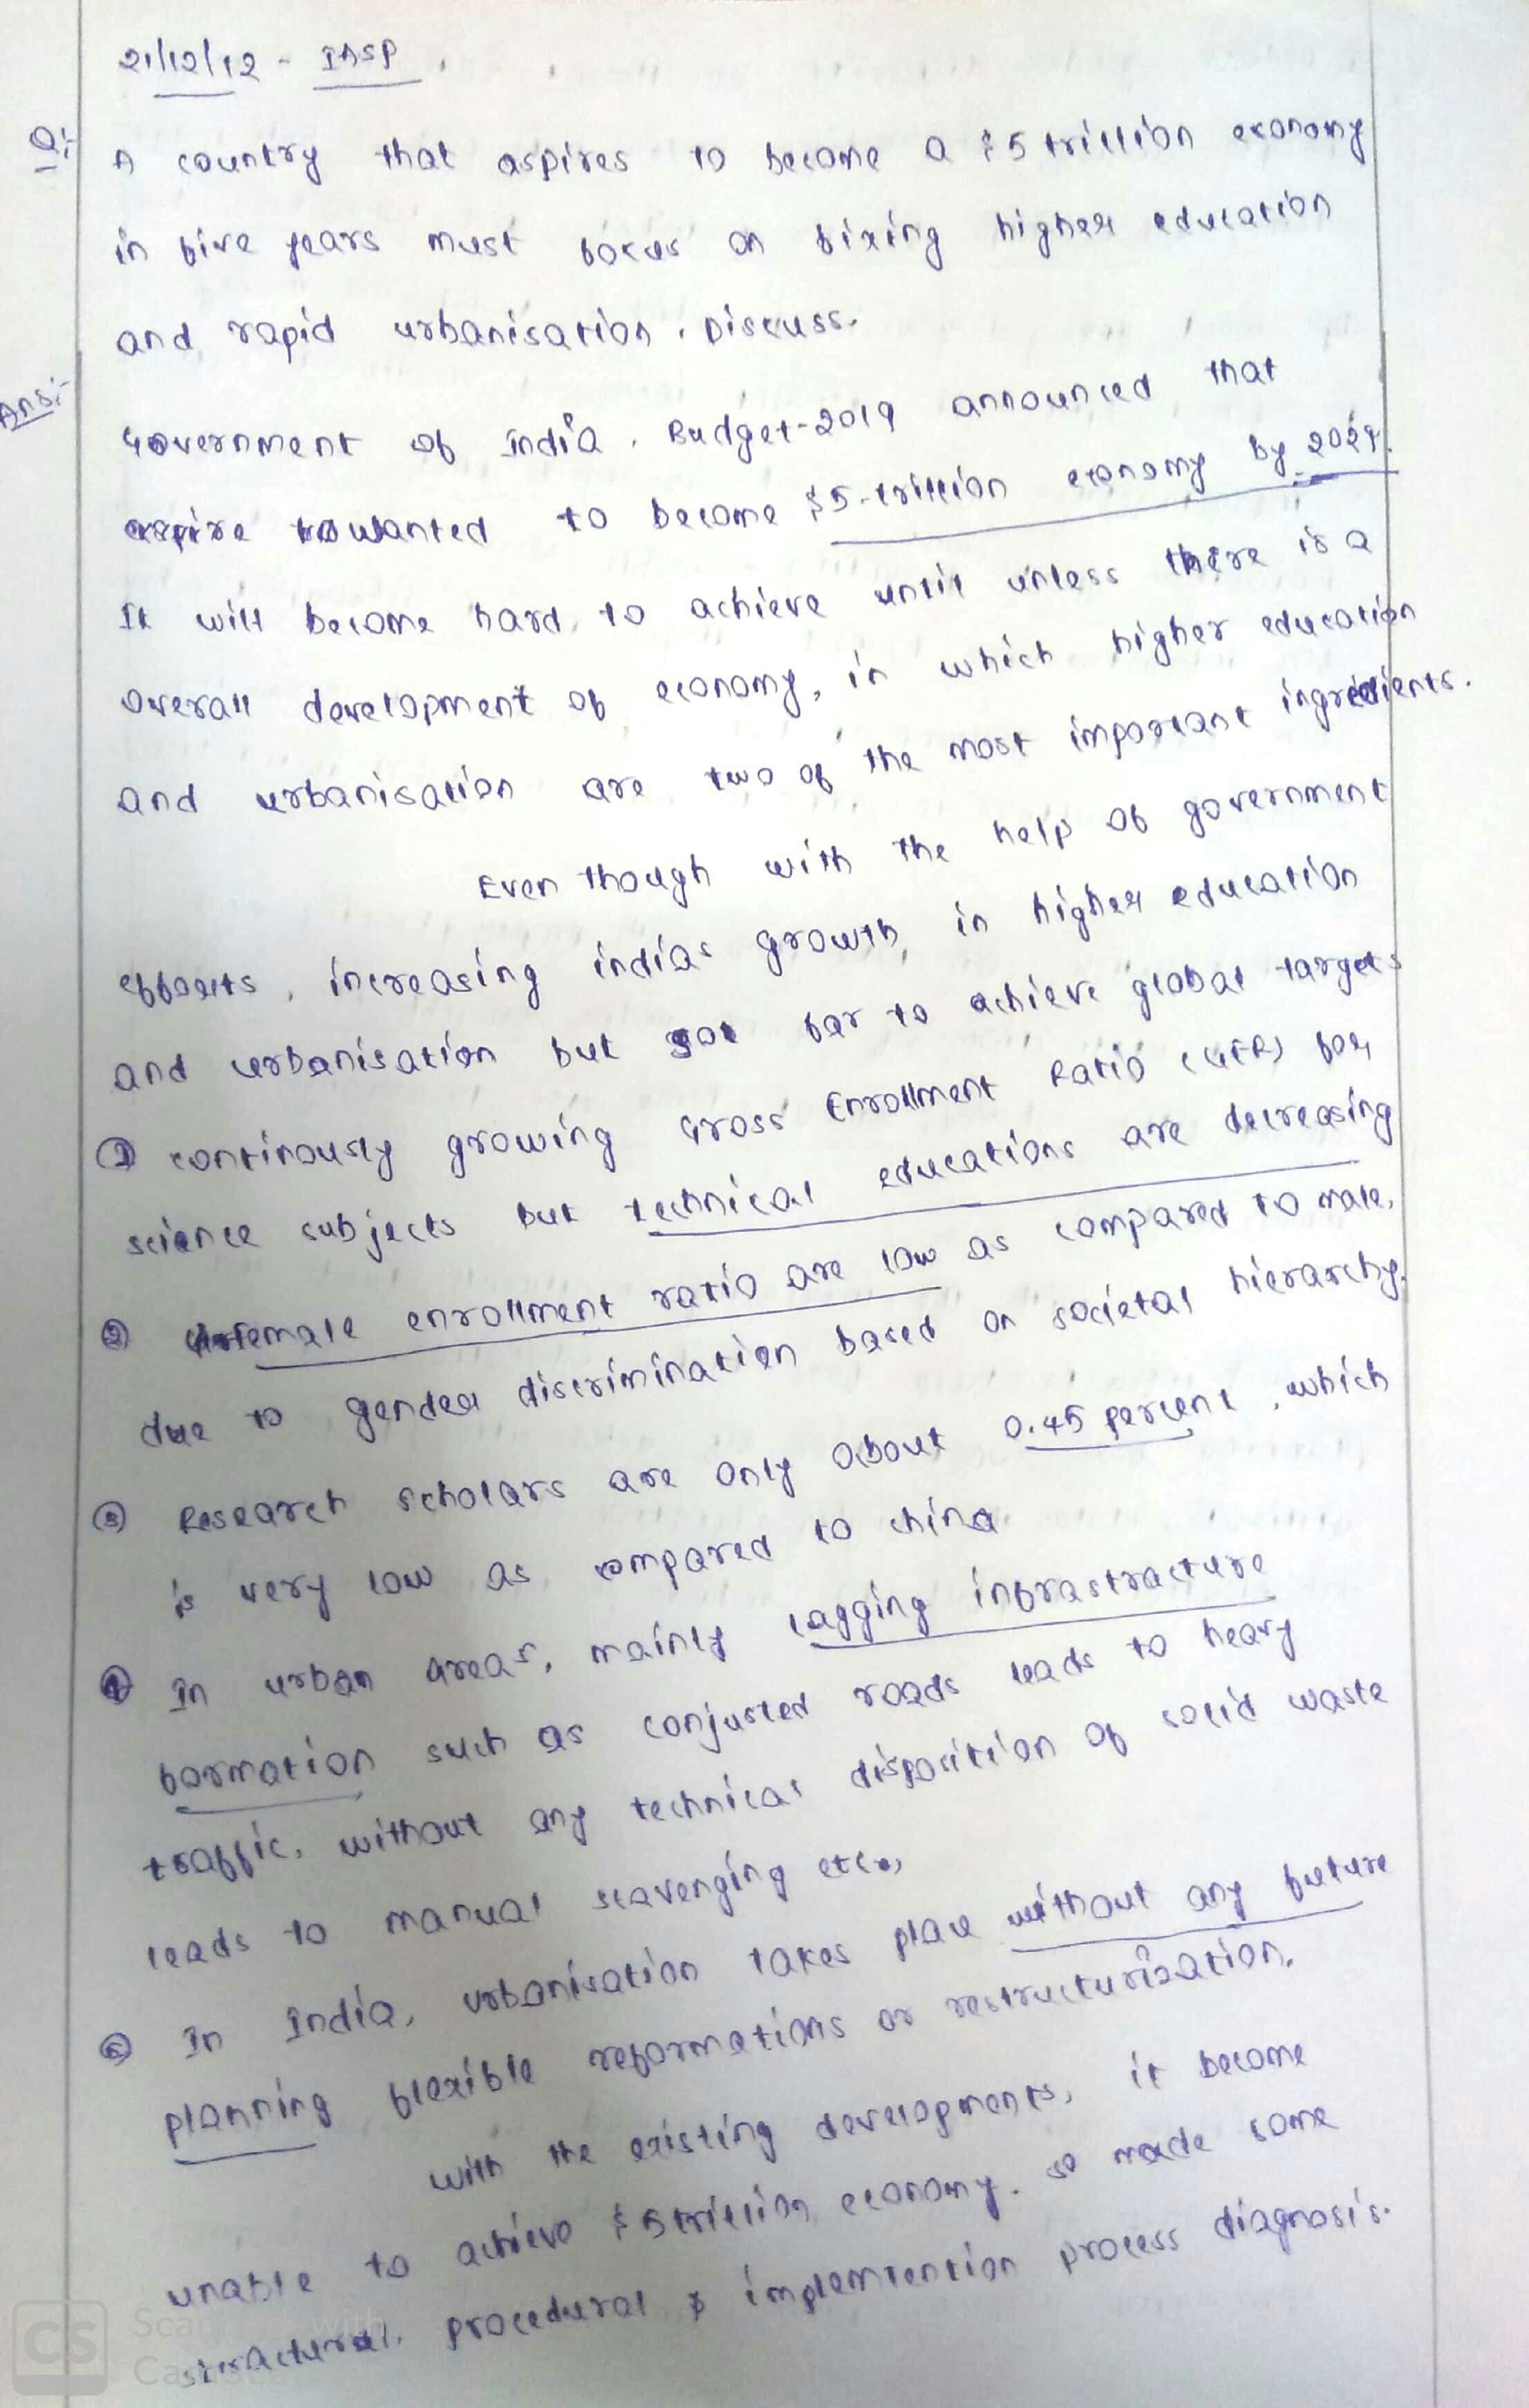 21/12/12 - IASP
Q:- A country that aspires to become a $5 trillion economy
in five years must focus on fixing higher education
and rapid urbanisation. Discuss.
Ans:- Government of India, Budget-2019 announced that
wanted to become $5-trillion economy by 2024.
It will become hard to achieve until unless there is a
overall development of economy, in which higher education
and urbanisation are two of the most important ingredients.
Even though with the help of government
efforts, increasing indias growth in higher education
and urbanisation but far to achieve global targets
① continously growing Gross Enrollment Ratio (GER) for
science subjects but technical educations are decreasing
② female enrollment ratio are low as compared to male,
due to gender discrimination based on societal hierarchy.
③ Research scholars are only about 0.45 percent, which
is very low as compared to china
④ In urban areas, mainly lagging infrastructure
formation such as conjusted roads leads to heavy
traffic, without any technical disposition of solid waste
leads to manual scavenging etc.,
⑤ In India, urbanisation takes place without any future
planning flexible reformations or restructurization.
with the existing developments, it become
unable to achieve $5 trillion economy. so made some
structural, procedural & implemtention process diagnosis.
CS